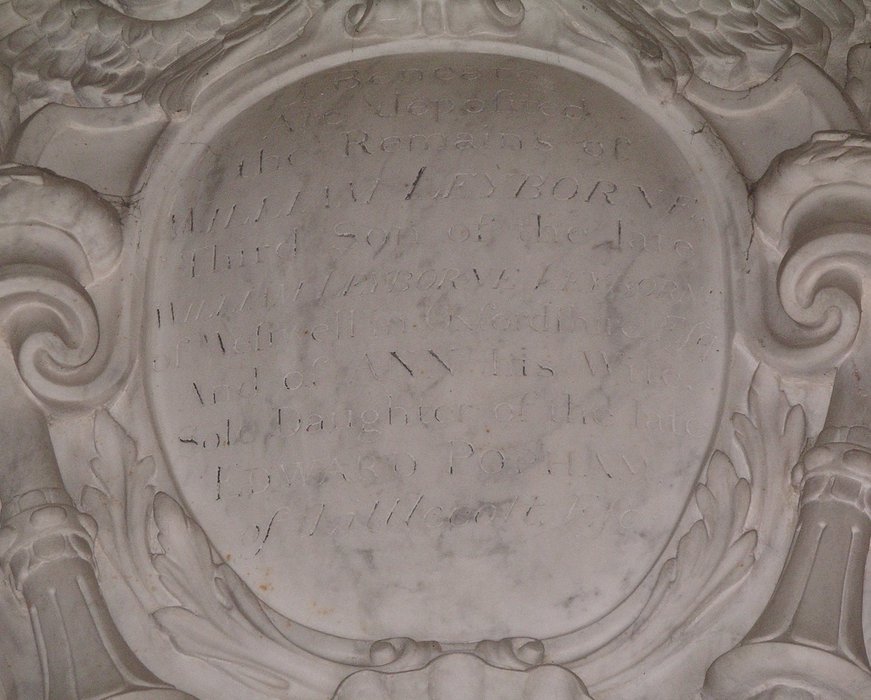 Beneath
Are depoſited
the Remains of
WILLIAM LEYBORNE
Third Son of the late
WILLIAM LEYBORNE LEYBORNE
of Weſtwell in Oxfordſhire Eſqr
And of ANN his Wife
Sole Daughter of the late
EDWARD POPHAM
of Littlecott Eſq